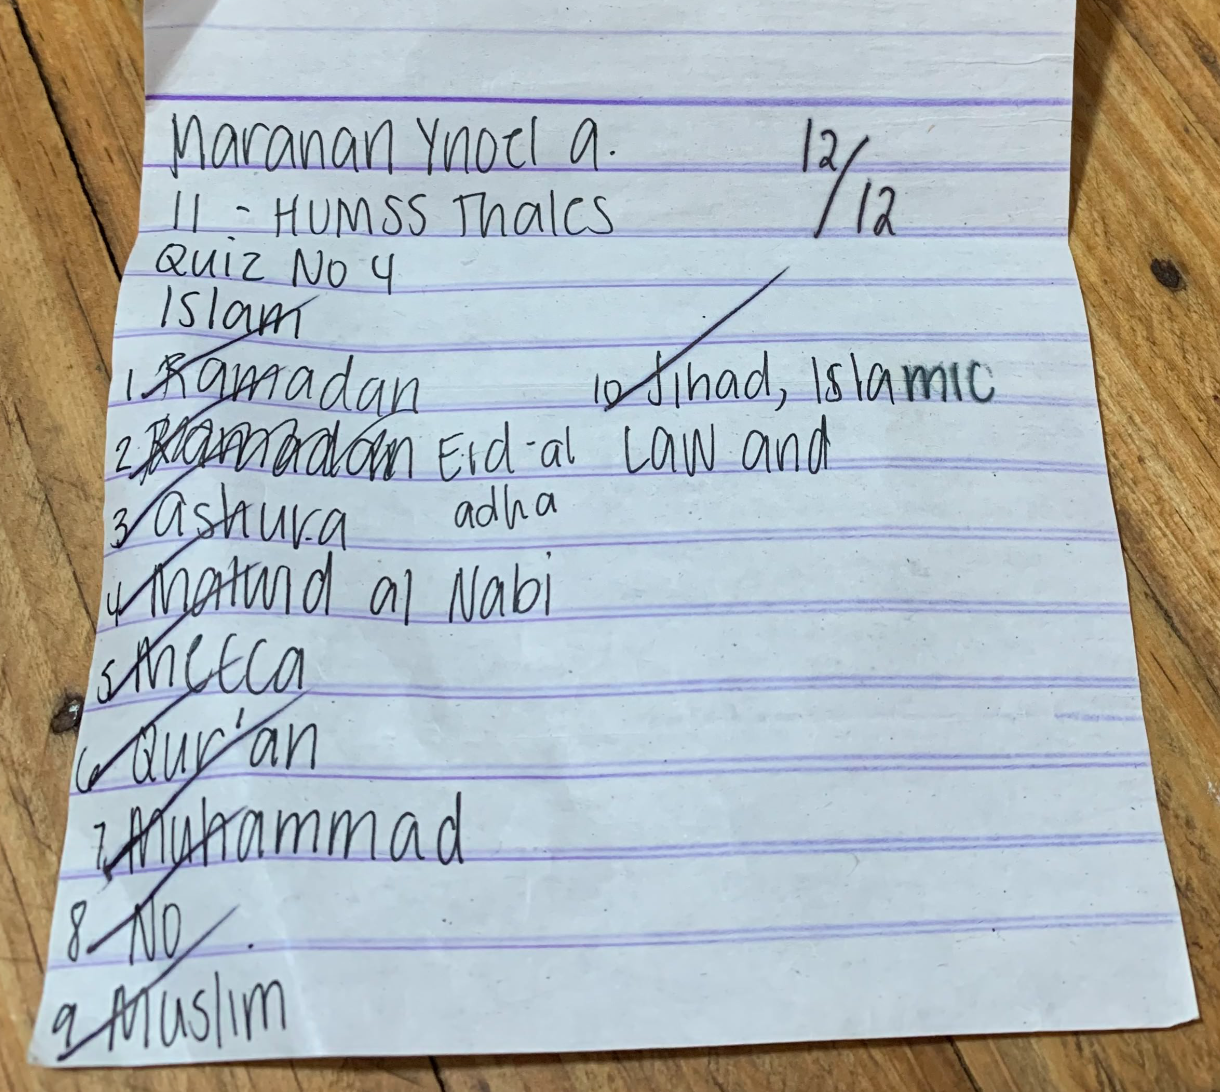 Maranan Ynoel A.
12/12
11 - HUMSS Thales
Quiz No 4
Islam
1. Ramadan
2. Ramadan Eid-al adha
3. Ashura
4. Malund al Nabi
5. Mecca
6. Qur'an
7. Muhammad
8. No
9. Muslim
10. Jihad, Islamic
Law and